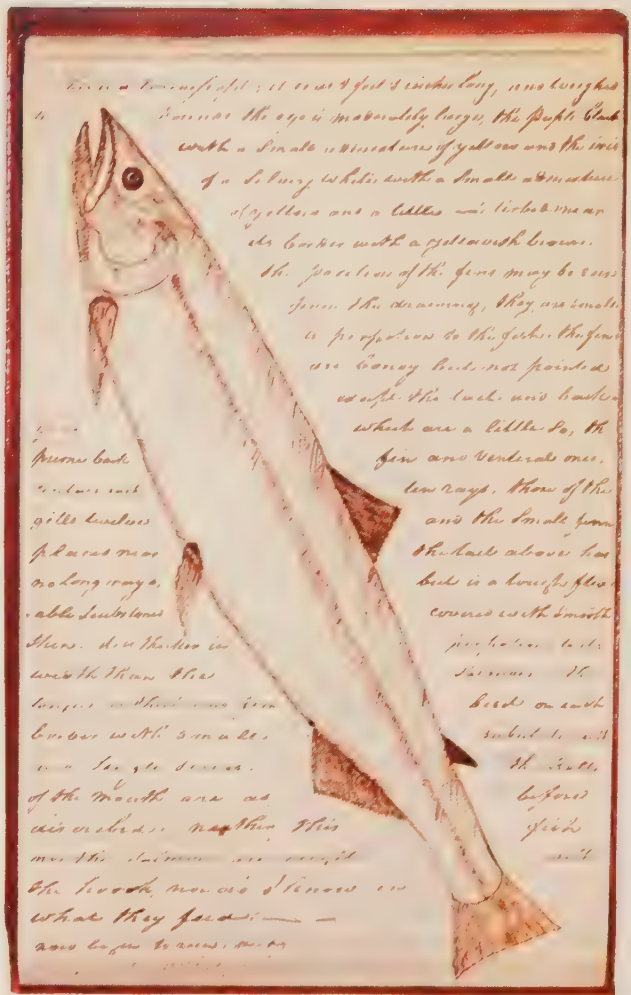 long, and weighed
the eye is moderately large, the puple black
with a small admixture of yellow and the iris
of a silvery white with a small admixture
of yellow and a little near
its border with a yellowish brown.
the position of the fins may be seen
from the drawing, they are small
in proportion to the fish. the fins
are boney but not pointed
except the tail and back
which are a little so, the
prime back fin and ventral ones,
contain each ten rays, those of the
gills twelve and the small finn
placed near the tail above has
no long rays, but is a tough flex-
able substance covered with smooth
skin. it is thicker in proportion to it's
width than the salmon. the
tongue is thick and firm beset on each
border with small subulate teeth
in a single series. the teeth
of the mouth are as before
discribed. neither this fish
nor the salmon are caught with
the hook, nor do I know on
what they feed. —— —
now begin to run